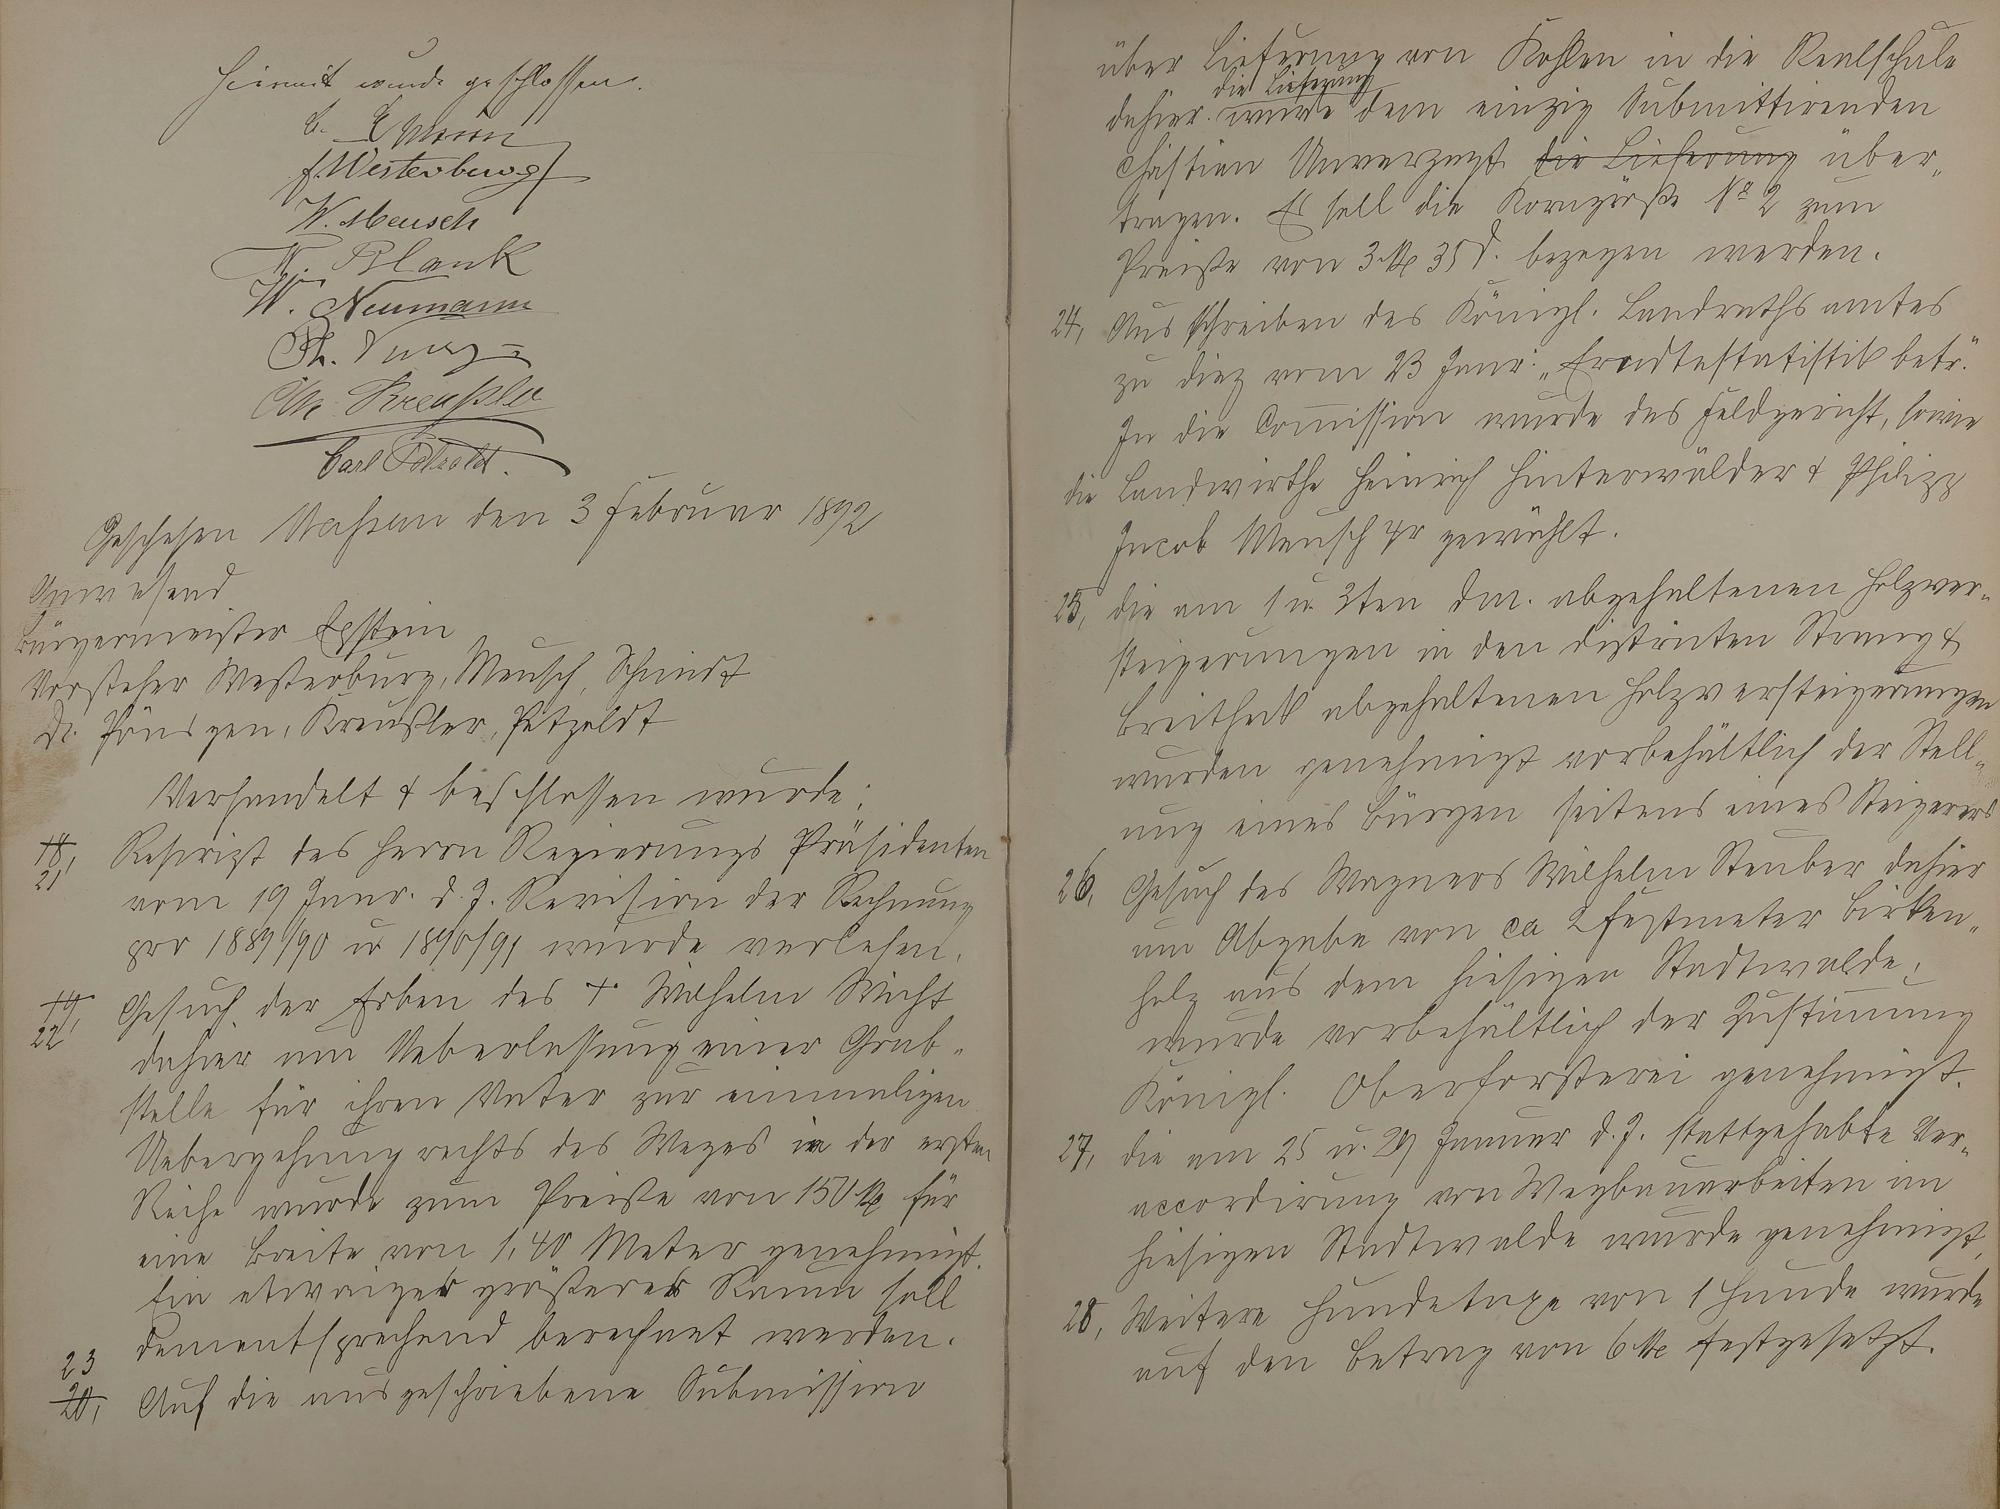 Hiermit wurde geschlossen.
F. Westerburg
W. Meusch
W. Blank
W. Neumann
Ph.
Chr. Kreußler
Carl Petzoldt.
Geschehen Nassau den 3 Februar 1892
Anwesend
Bürgermeister Epstein
Vorsteher Westerburg, Meusch, Schmidt
Dr. Pönsgen, Kreußler, Petzoldt
Verhandelt & beschlossen wurde:
18, 21 Rescript des Herrn Regierungs Präsidenten
vom 19 Janr. d. J. Revision der Rechnung
pro 1889/90 u 1890/91 wurde verlesen.
19, 22 Gesuch der Erben des + Wilhelm Wicht
dahier um Ueberlassung einer Grab-
stelle für ihren Vater zur einmaligen
Uebergehung rechts des Weges in der ersten
Reihe wurde zum Preiße von 150 M für
eine Breite von 1,40 Meter genehmigt.
Ein etwaiger größerer Raum soll
dementsprechend berechnet werden.
23
20, Auf die ausgeschriebene Submission
über Lieferung von Kohlen in die Realschule
die Lieferung
dahier. wurde dem einzig Submittirenden
Christian Unverzagt die Lieferung über-
tragen. Es soll die Korngröße No 2 zum
Preiße von 3 M 35 d. bezogen werden.
24, Ausschreiben des Königl. Landrathsamtes
zu Diez vom 23 Janr: "Erndtestatistik betr."
In die Commission wurde das Feldgericht, sowie
die Landwirthe Heinrich Hinterwälder & Philipp
Jacob Meusch gewählt.
25, die am 1 u. 2ten dM. abgehaltenen Holzver-
steigerungen in den Distrikten Strang &
Breitheck abgehaltenen Holzversteigerungen
wurden genehmigt vorbehältlich der Stell-
ung eines Bürgen seitens eines Steigerers
26, Gesuch des Wagners Wilhelm Steuber dahier
um Abgabe von ca 2 Festmeter Birken-
holz aus dem hiesigen Stadtwalde,
wurde vorbehältlich der Zustimmung
Königl. Oberforsterei genehmigt.
27, die am 25 u. 29 Januar d. J. stattgehabte Ver-
accordirung von Wegbauarbeiten im
hiesigen Stadtwalde wurde genehmigt,
28, Weitere Hundetaxe von 1 Hunde wurde
auf den Betrag von 6 M festgesetzt.